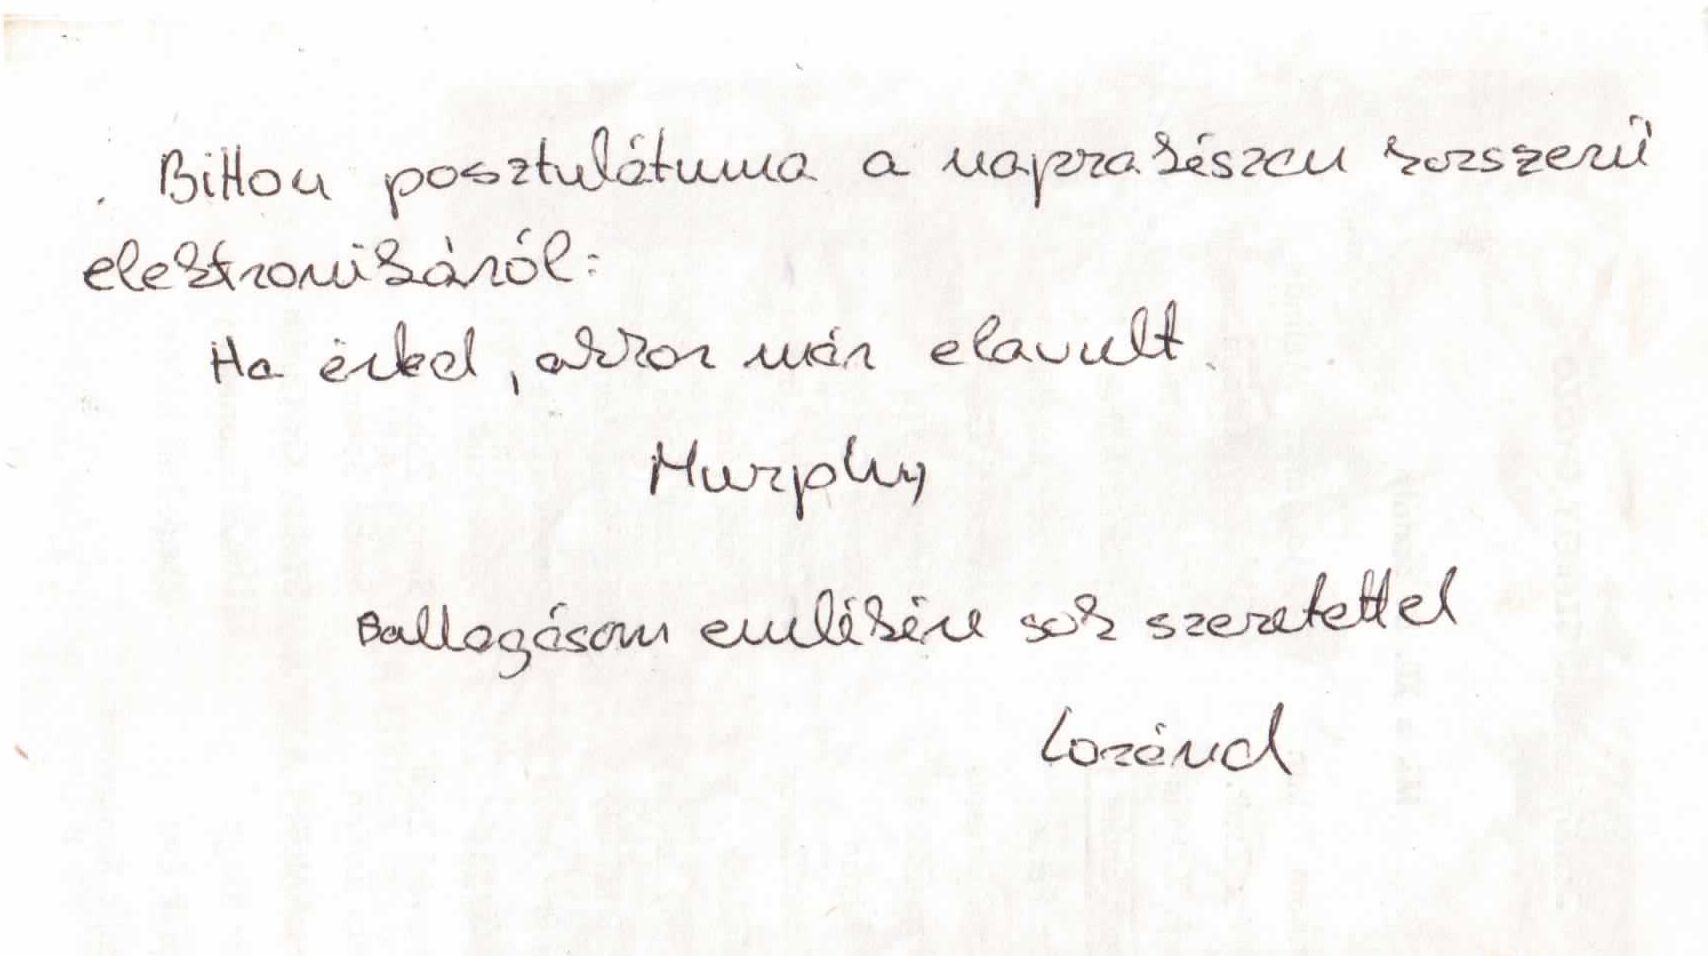 Bitton posztulátuma a naprakészen korszerű
elektronikáról:
Ha érted, akkor már elavult.
Murphy
Ballagásom emlékére sok szeretettel
Loránd